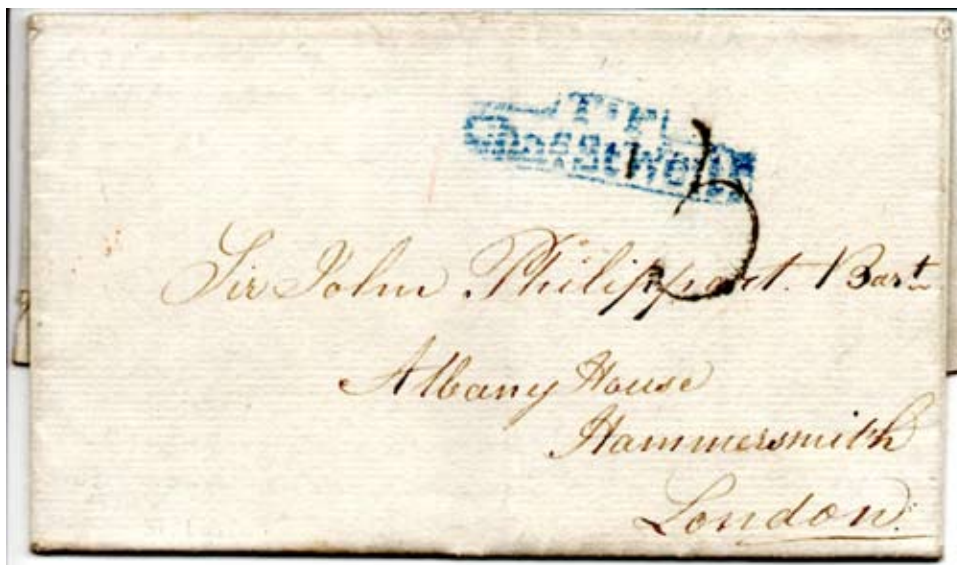 T.P.
Chas St West
3
Sir John Philippart. Bart
Albany House
Hammersmith
London.